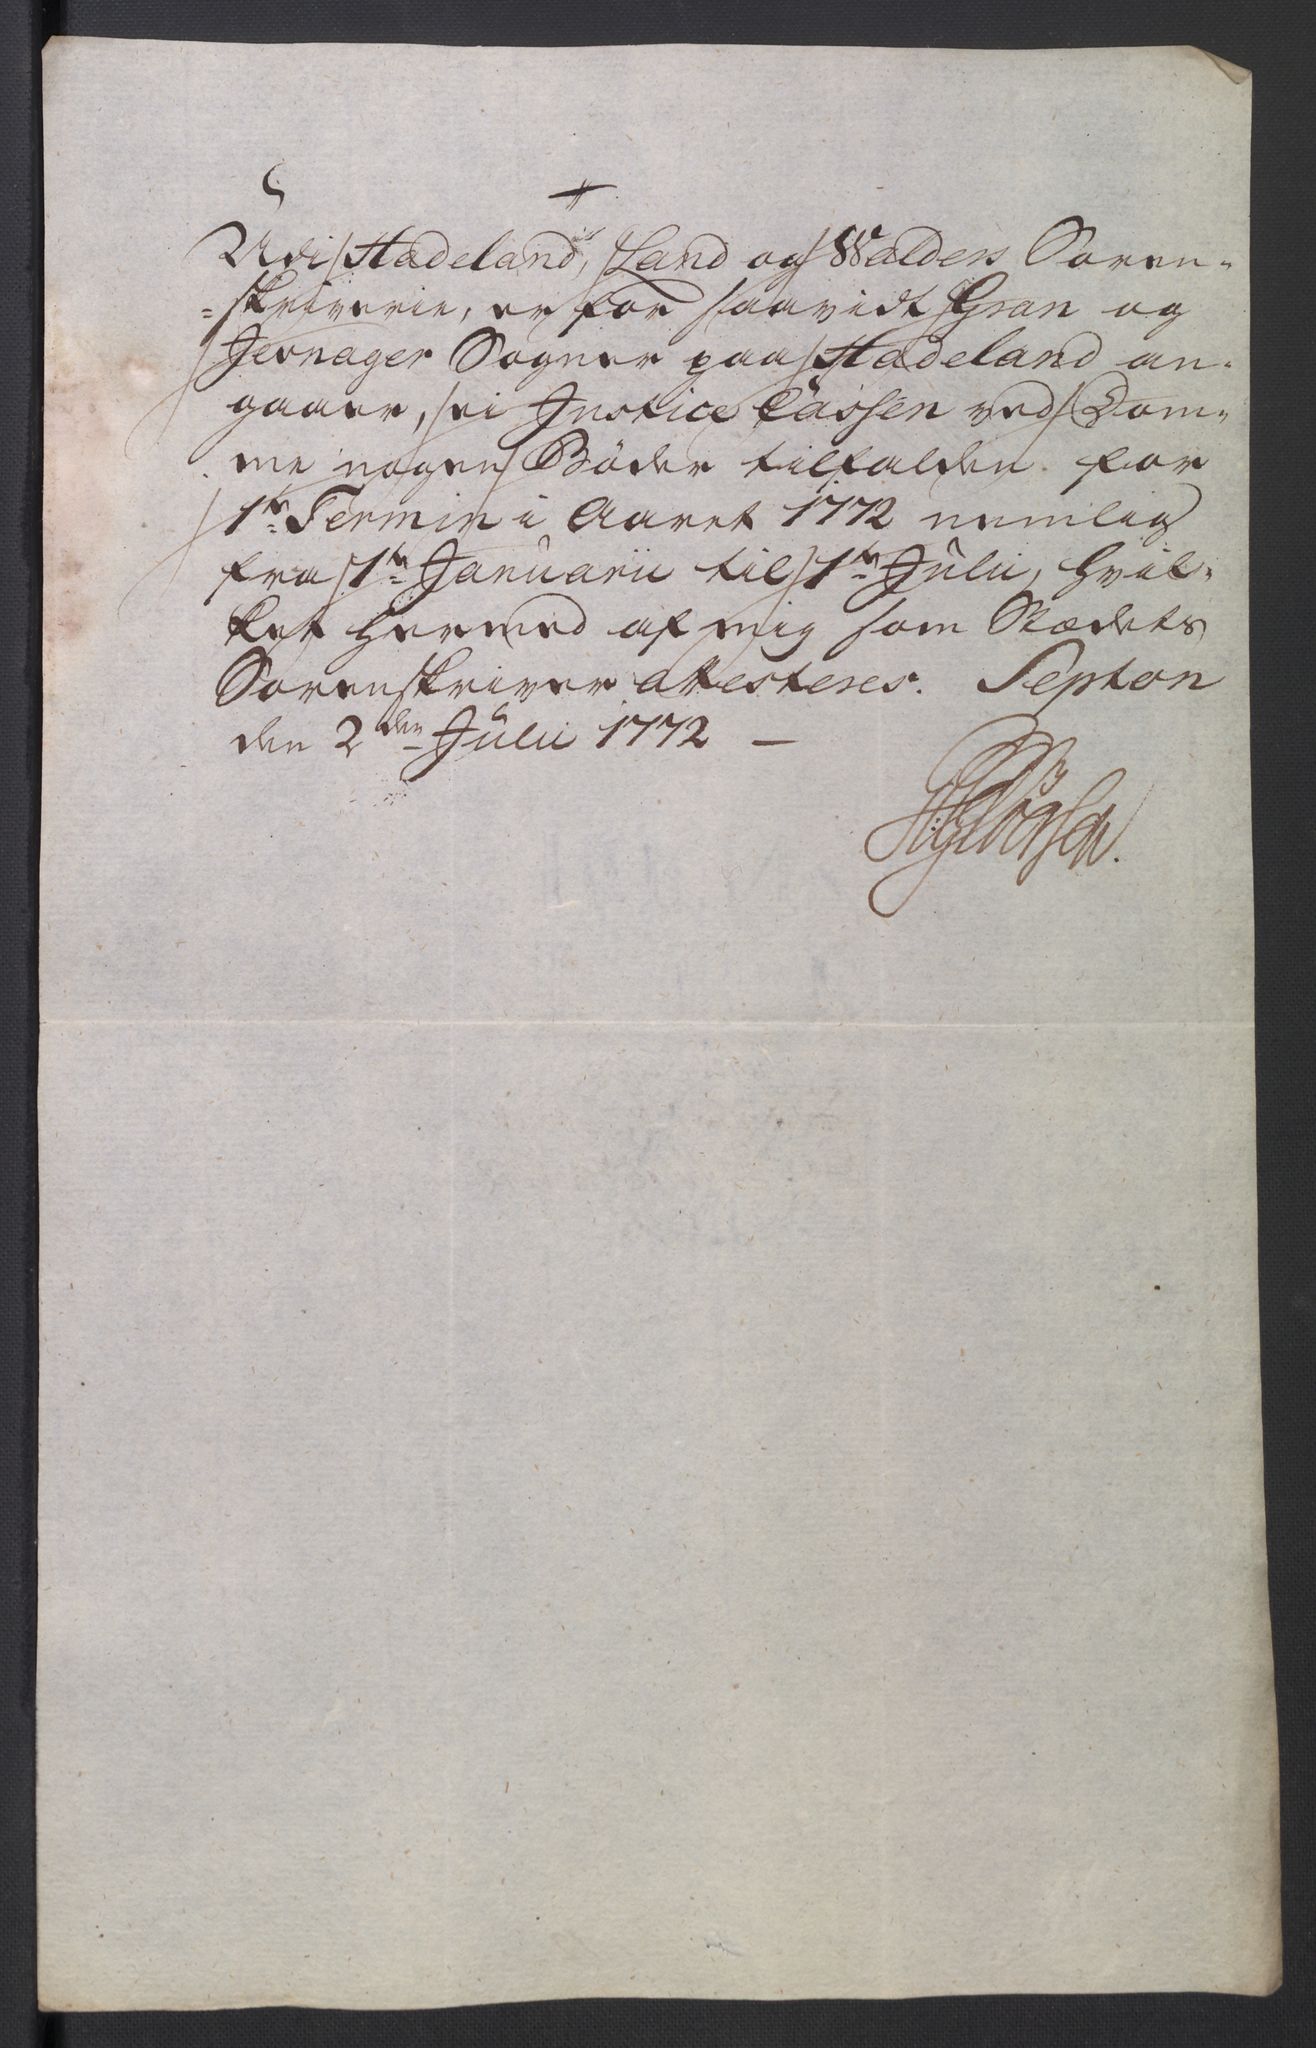 Udi Hadeland, Land og Walders Soren-
=skriverie, er for saavidt Gran og
Jevnager Sogner paa Hadeland an-
gaaer, ei Justice Cassen ved Dom-
me nogen Böder tilfalden for
1te Termin i Aaret 1772 nemlig
fra 1te Januarii til 1te Julii, hvil-
ket hermed af mig som Stædets
Sorenskriver attesteres. Septon
den 2den Julii 1772 —